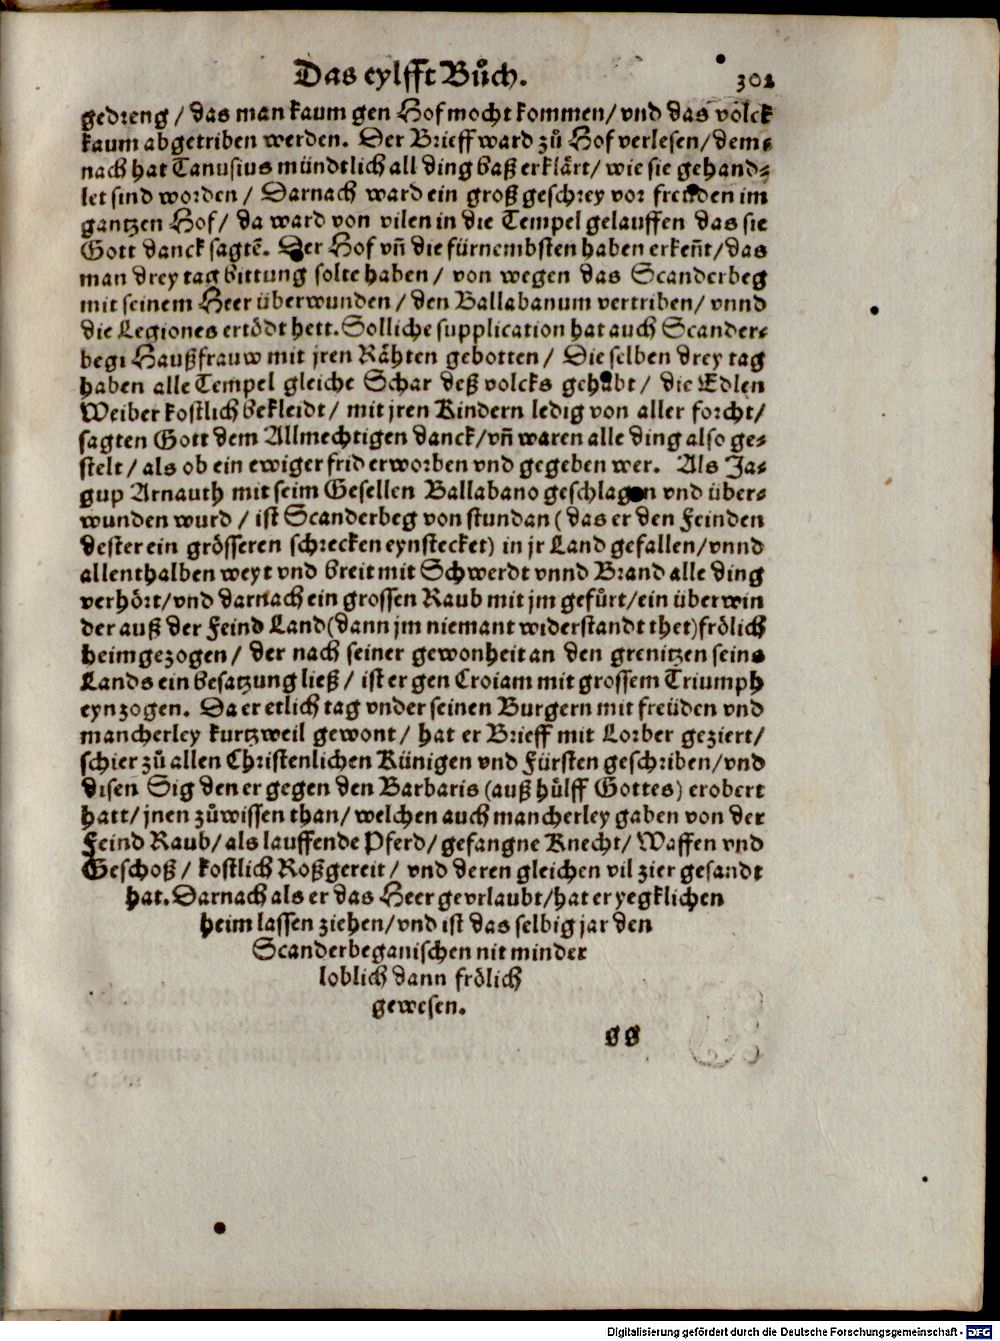 Das eylfft Bůch. 301
gedreng / das man kaum gen Hof mocht kommen / vnd das völck
kaum abgetriben werden. Der Brieff ward zů Hof verlesen / dem⸗
nach hat Tanusius mündtlich all ding baß erklärt / wie sie gehand⸗
let sind worden / Darnach ward ein groß geschrey vor freüden im
gantzen Hof / da ward von vilen in die Tempel gelauffen das sie
Gott danck sagtē. Der Hof vn̄ die fürnembsten haben erken̄t / das
man drey tag bittung solte haben / von wegen das Scanderbeg
mit seinem Heer überwunden / den Ballabanum vertriben / vnnd
die Legiones ertödt hett. Solliche supplication hat auch Scander⸗
begi Haußfrauw mit jren Rähten gebotten / Die selben drey tag
haben alle Tempel gleiche Schar deß volcks gehabt / die Edlen
Weiber kostlich bekleidt / mit jren Kindern ledig von aller forcht /
sagten Gott dem Allmechtigen danck / vn̄ waren alle ding also ge⸗
stelt / als ob ein ewiger frid erworben vnd gegeben wer. Als Ja⸗
gup Arnauth mit seim Gesellen Ballabano geschlagen vnd über⸗
wunden wurd / ist Scanderbeg von stundan ( das er den Feinden
dester ein grösseren schrecken eynstecket) in jr Land gefallen / vnnd
allenthalben weyt vnd breit mit Schwerdt vnnd Brand alle ding
verhört / vnd darnach ein grossen Raub mit jm gefůrt / ein überwin
der auß der Feind Land (dann jm niemant widerstandt thet) frölich
heimgezogen / der nach seiner gewonheit an den grenitzen seins
Lands ein besatzung ließ / ist er gen Croiam mit grossem Triumph
eynzogen. Da er etlich tag vnder seinen Burgern mit freüden vnd
mancherley kurtzweil gewont / hat er Brieff mit Lorber geziert /
schier zů allen Christenlichen Künigen vnd Fürsten geschriben / vnd
disen Sig den er gegen den Barbaris (auß hülff Gottes) erobert
hatt / jnen zůwissen than / welchen auch mancherley gaben von der
Feind Raub / als lauffende Pferd / gefangne Knecht / Waffen vnd
Geschoß / kostlich Roßgereit / vnd deren gleichen vil zier gesandt
hat. Darnach als er das Heer geurlaubt / hat er yegklichen
heim lassen ziehen / vnd ist das selbig jar den
Scanderbeganischen nit minder
loblich dann frölich
gewesen.
gg
Digitalisierung gefördert durch die Deutsche Forschungsgemeinschaft - DFG